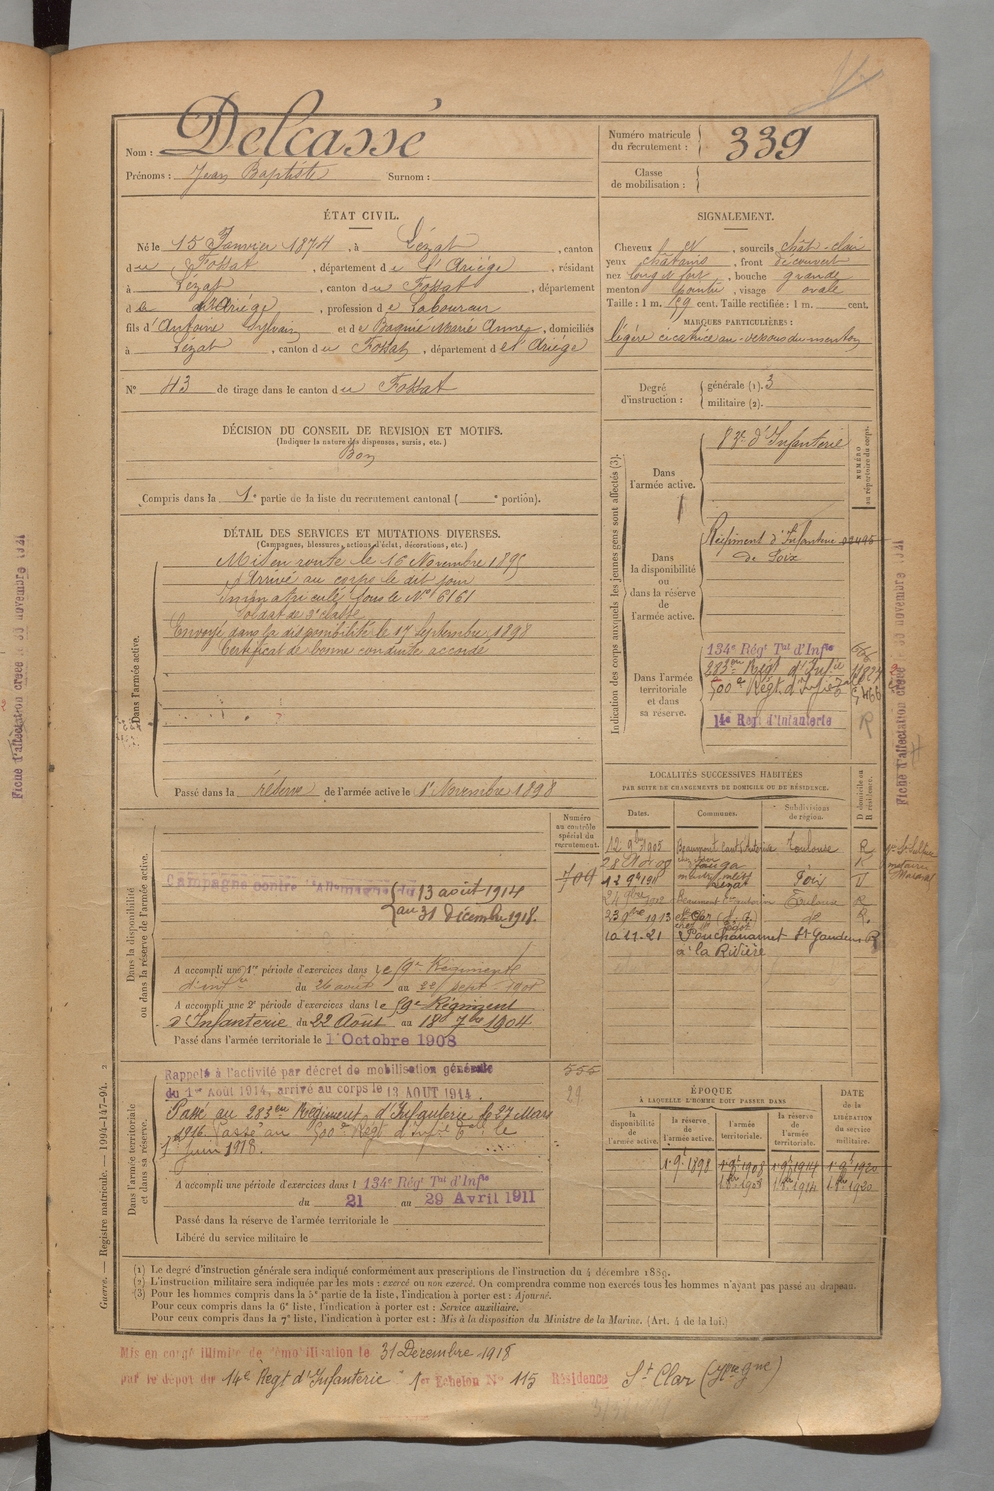 Nom : Delcassé
Prénoms : Jean Baptiste Surnom :
Numéro matricule du recrutement : 339
Classe de mobilisation :
ÉTAT CIVIL.
Né le 15 Janvier 1874, à Lézat, canton
du Fossat, département de l'Ariège, résidant
à Lézat, canton du Fossat, département
de l'Ariège, profession de Laboureur
fils d'Antoine Sylvain et de Marie Anne, domiciliés
à Lézat, canton du Fossat, département de l'Ariège
N° 43 de tirage dans le canton du Fossat
SIGNALEMENT.
Cheveux, sourcils chât-clair
yeux châtains, front découvert
nez long et fort, bouche grande
menton pointu, visage ovale
Taille : 1 m. cent. Taille rectifiée : 1 m. cent.
MARQUES PARTICULIÈRES :
légère cicatrice au-dessous du menton
Degré d'instruction : générale (1). 3
militaire (2).
DÉCISION DU CONSEIL DE REVISION ET MOTIFS.
(Indiquer la nature des dispenses, sursis, etc.)
Bon
Compris dans la 1e partie de la liste du recrutement cantonal ( e portion).
DÉTAIL DES SERVICES ET MUTATIONS DIVERSES.
(Campagnes, blessures, actions d'éclat, décorations, etc.)
Dans l'armée active.
Mis en route le 16 Novembre 1895
Arrivé au corps le dit jour
Immatriculé sous le N° 6161
Soldat de 2e classe
Envoyé dans la disponibilité le 17 Septembre 1898
Certificat de bonne conduite accordé
Passé dans la réserve de l'armée active le 1er Novembre 1898
Indication des corps auxquels les jeunes gens sont affectés (3).
NUMÉRO au répertoire du corps.
Dans l'armée active.
d'Infanterie
Dans la disponibilité ou dans la réserve de l'armée active.
Régiment d'Infanterie
de Foix
Dans l'armée territoriale et dans sa réserve.
134e Régt Tal d'Infie
283eme Régt d'Infie
500e Régt d'Infie
14e Régt d'Infanterie
R
Fiche d'affectation créée le 30 novembre 1921
LOCALITÉS SUCCESSIVES HABITÉES
PAR SUITE DE CHANGEMENTS DE DOMICILE OU DE RÉSIDENCE.
Dates. Communes. Subdivisions de région. D domicile ou R résidence.
12 9bre 1905 Toulouse R
Foix
Toulouse R
23 9bre 1913 St Clar de R.
10-11-21 St Gaudens R
à la Rivière
Dans la disponibilité ou dans la réserve de l'armée active.
Numéro au contrôle spécial du recrutement.
Campagne contre l'Allemagne du 13 août 1914
au 31 décembre 1918.
A accompli une 1re période d'exercices dans le 59e Régiment
d'infie du 26 août au 22 sept 1901
A accompli une 2e période d'exercices dans le 59e Régiment
d'Infanterie du 22 Août au 18 7bre 1904
Passé dans l'armée territoriale le 1 Octobre 1908
Dans l'armée territoriale et dans sa réserve.
Rappelé à l'activité par décret de mobilisation générale
du 1er Août 1914, arrivé au corps le 13 AOUT 1914.
Passé au 283eme Régiment d'Infanterie le 27 Mars
1916. Passé au 500e Régt d'Infie Tale le
1er Juin 1918.
A accompli une période d'exercices dans l 134e Régt Tal d'Infie
du 21 au 29 Avril 1911
Passé dans la réserve de l'armée territoriale le
Libéré du service militaire le
ÉPOQUE
À LAQUELLE L'HOMME DOIT PASSER DANS
la disponibilité de l'armée active. la réserve de l'armée active. l'armée territoriale. la réserve de l'armée territoriale. DATE de la LIBÉRATION du service militaire.
1 9bre 1898 1 9bre 1908 1 9bre 1914 1 9bre 1920
1 8bre 1908 1 8bre 1914 1 8bre 1920
(1) Le degré d'instruction générale sera indiqué conformément aux prescriptions de l'instruction du 4 décembre 1889.
(2) L'instruction militaire sera indiquée par les mots : exercé ou non exercé. On comprendra comme non exercés tous les hommes n'ayant pas passé au drapeau.
(3) Pour les hommes compris dans la 5e partie de la liste, l'indication à porter est : Ajourné.
Pour ceux compris dans la 6e liste, l'indication à porter est : Service auxiliaire.
Pour ceux compris dans la 7e liste, l'indication à porter est : Mis à la disposition du Ministre de la Marine. (Art. 4 de la loi.)
Guerre. — Registre matricule. — 1994-147-94. 2
Mis en congé illimité de démobilisation le 31 Décembre 1918
par le dépôt du 14e Régt d'Infanterie 1er Echelon N° 115 Résidence St Clar
Fiche d'affectation créée le 30 novembre 1921